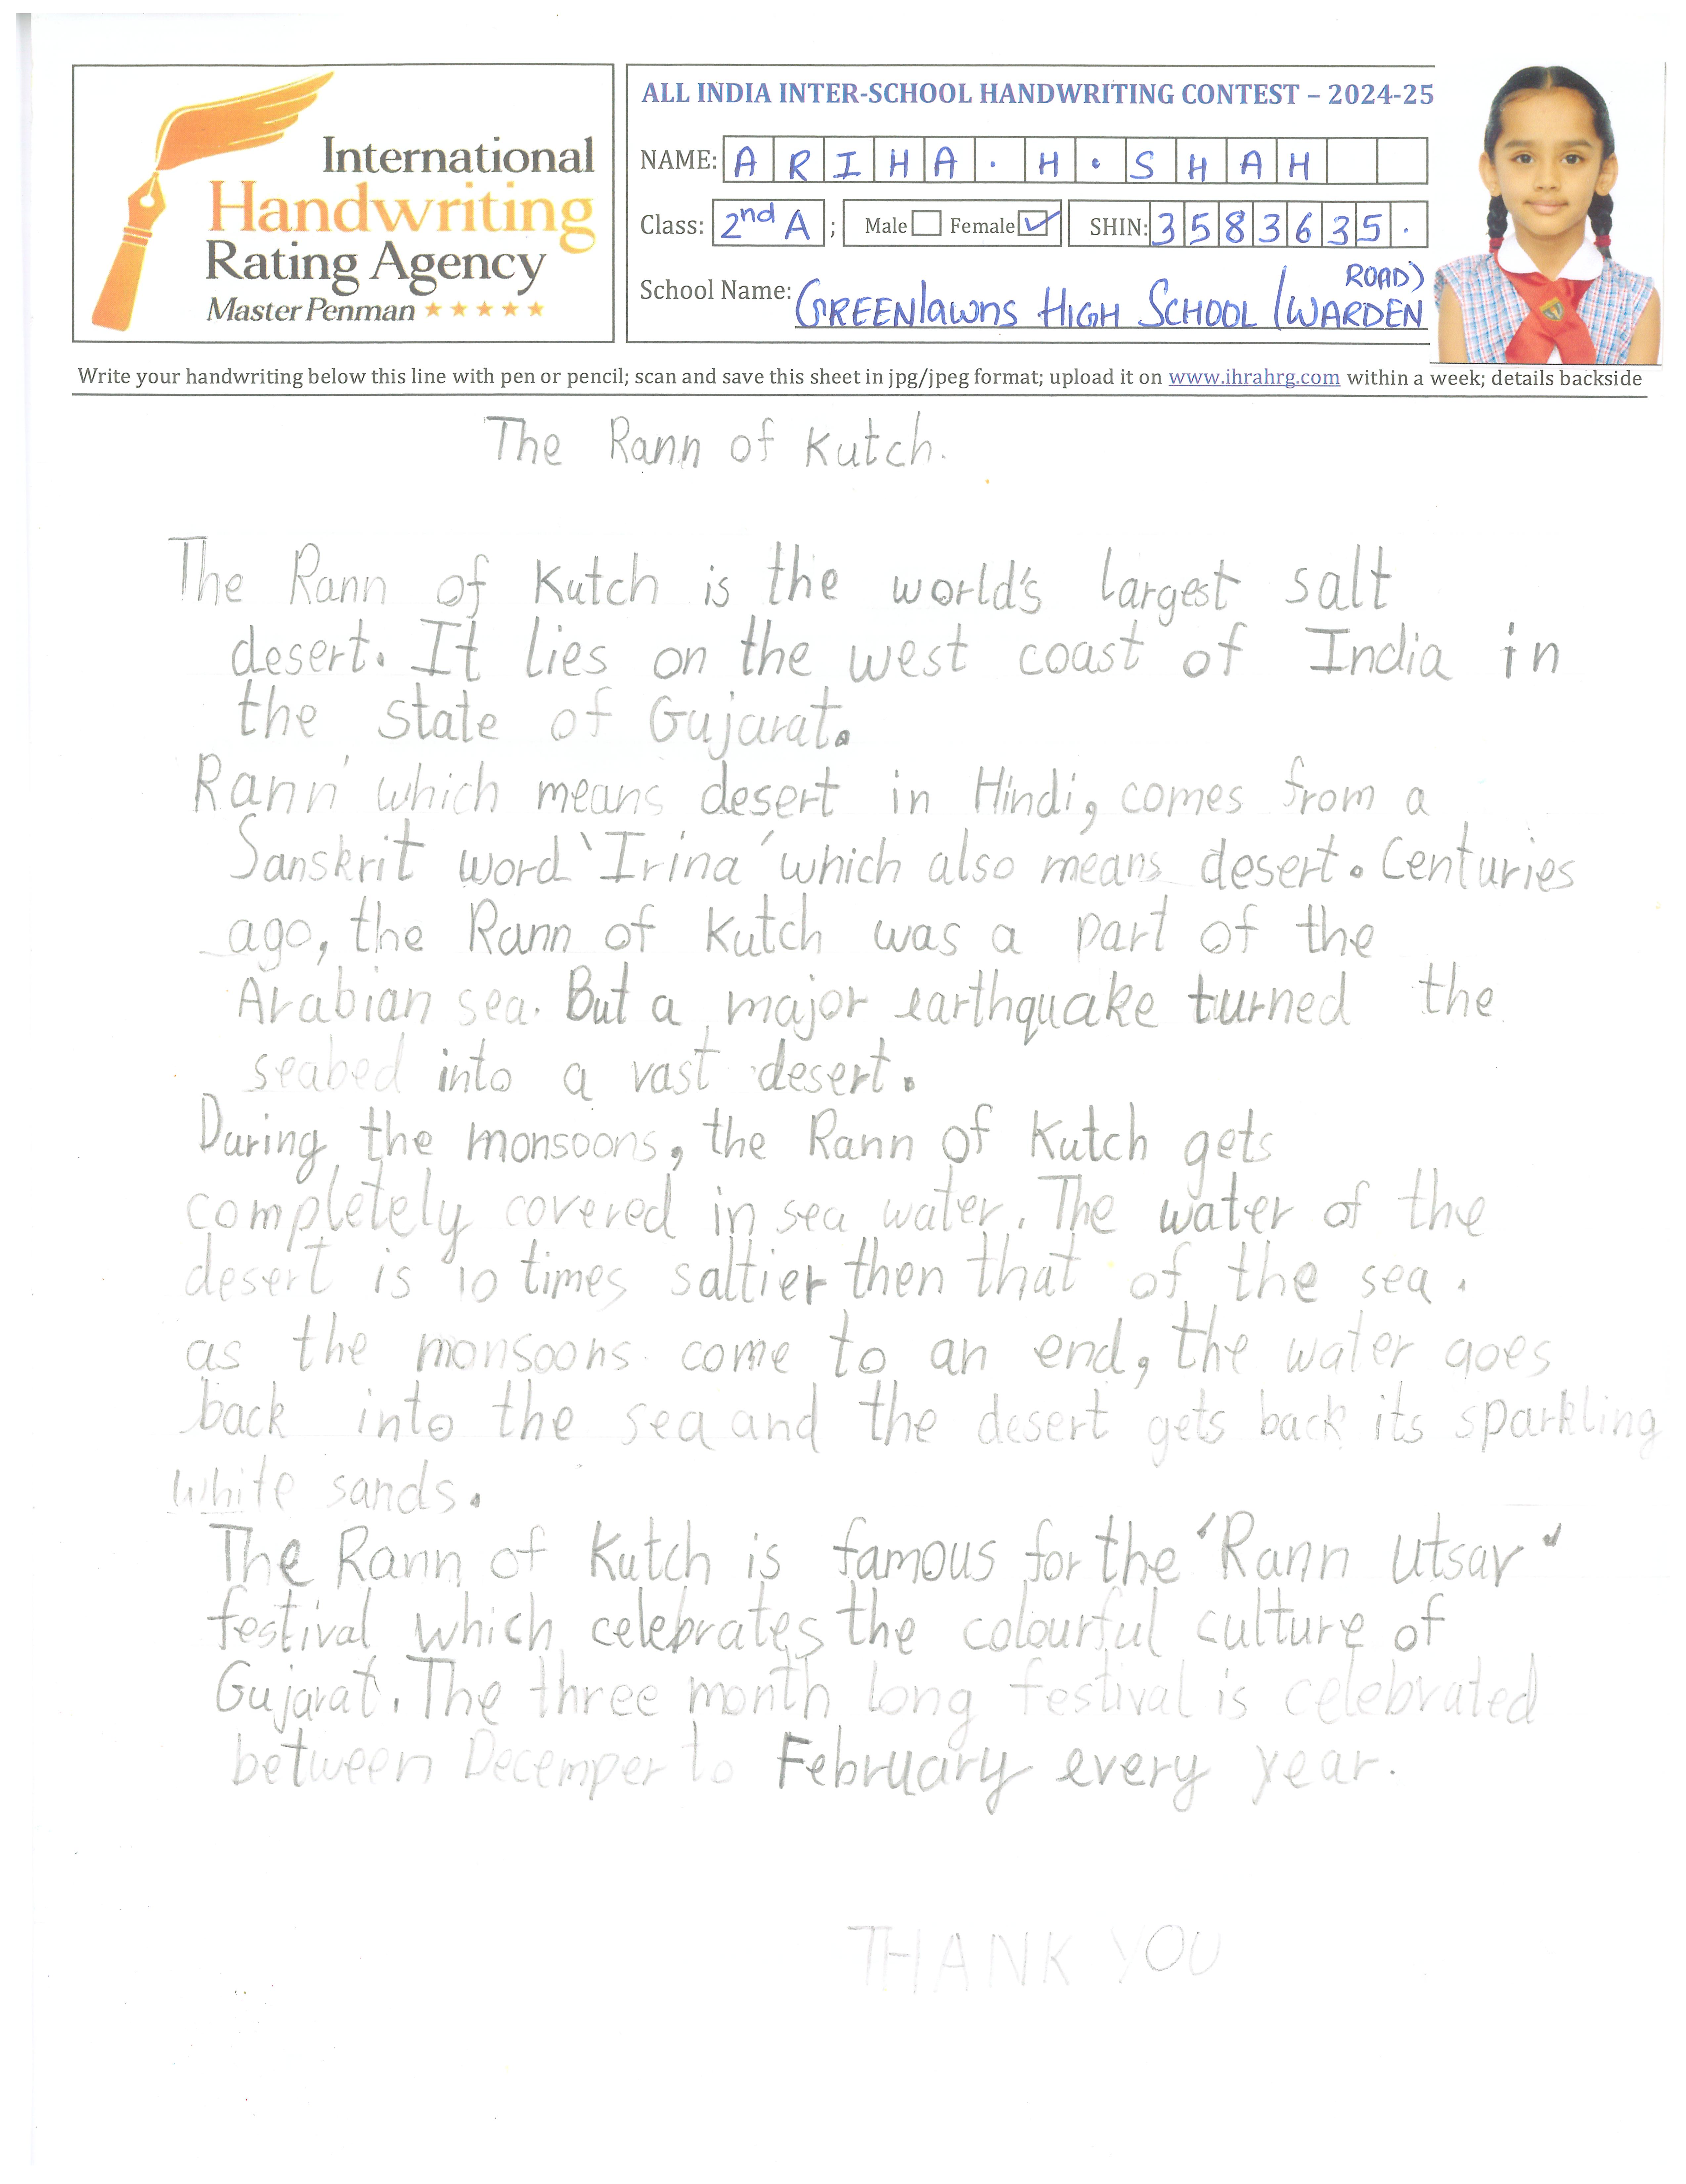 International
Handwriting
Rating Agency
Master Penman
ALL INDIA INTER-SCHOOL HANDWRITING CONTEST – 2024-25
NAME: ARIHA. H. SHAH
Class: 2nd A ; Male Female ✓ SHIN: 3583635.
School Name: GREENlawns HIGH SCHOOL (WARDEN
ROAD)
Write your handwriting below this line with pen or pencil; scan and save this sheet in jpg/jpeg format; upload it on www.ihrahrg.com within a week; details backside
The Rann of Kutch.
The Rann of Kutch is the world's largest salt
desert. It lies on the west coast of India in
the state of Gujarat.
Rann' which means desert in Hindi, comes from a
Sanskrit word 'Irina' which also means desert. Centuries
ago, the Rann of Kutch was a part of the
Arabian sea. But a major earthquake turned the
seabed into a vast desert.
During the monsoons, the Rann of Kutch gets
completely covered in sea water. The water of the
desert is 10 times saltier then that of the sea.
as the monsoons come to an end, the water goes
back into the sea and the desert gets back its sparkling
white sands.
The Rann of Kutch is famous for the 'Rann Utsav'
festival which celebrates the colourful culture of
Gujarat. The three month long festival is celebrated
between Decemper to February every year.
THANK YOU